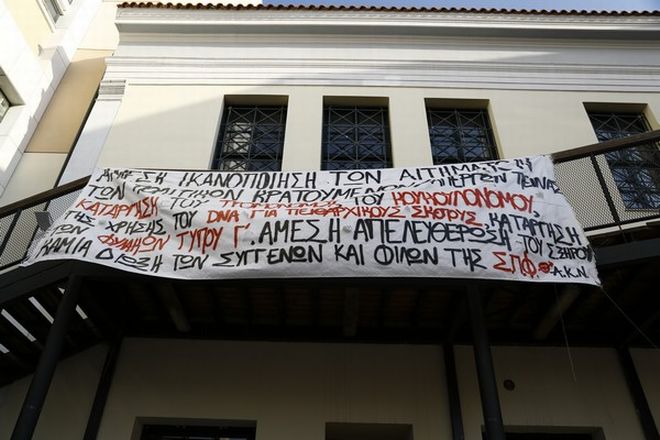 ΑΜΕΣΗ ΙΚΑΝΟΠΟΙΗΣΗ ΤΩΝ ΑΙΤΗΜΑΤΩΝ
ΤΩΝ ΠΟΛΙΤΙΚΩΝ ΚΡΑΤΟΥΜΕΝΩΝ ΑΠΕΡΓΩΝ ΠΕΙΝΑΣ
ΚΑΤΑΡΓΗΣΗ ΤΟΥ ΤΡΟΜΟΝΟΜΟΥ, ΤΟΥ ΚΟΥΚΟΥΛΟΝΟΜΟΥ,
ΤΗΣ ΧΡΗΣΗΣ ΤΟΥ DNA ΓΙΑ ΠΕΙΘΑΡΧΙΚΟΥΣ ΣΚΟΠΟΥΣ, ΚΑΤΑΡΓΗΣΗ
ΤΩΝ ΦΥΛΑΚΩΝ ΤΥΠΟΥ Γ'. ΑΜΕΣΗ ΑΠΕΛΕΥΘΕΡΩΣΗ ΤΟΥ ΣΞΗΡΟΥ
ΚΑΜΙΑ ΔΙΩΞΗ ΤΩΝ ΣΥΓΓΕΝΩΝ ΚΑΙ ΦΙΛΩΝ ΤΗΣ ΣΠΦ Α.Κ.Ν.